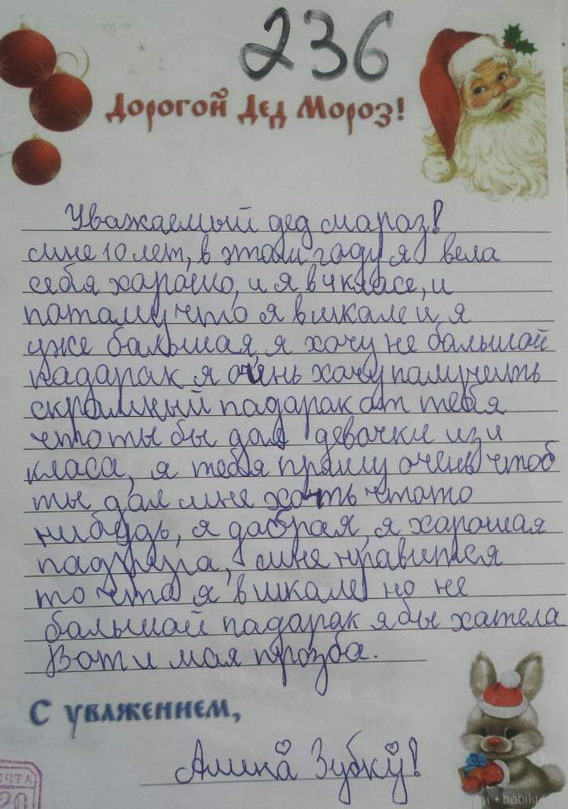 236
Дорогой Дед Мороз!
Уважаемый дед мараз!
мне 10 лет, в этом гаду я вела
себя харашо, и я в 4 класе, и
патаму что я в шкале и я
уже бальшая, я хочу не бальшой
падарак я очень хачу палучить
скромный падарак от тебя
что ты бы дал девачки из и
класа, я тебя прашу очень чтоб
ты дал мне хоть штото
нибудь, я добрая, я харошая
падруга, мне нравится
то что я в шкале но не
бальшой падарак я бы хатела
Вот и мая прозба.
С уважением,
Алина Зубку!
ЧТА
20
babiki